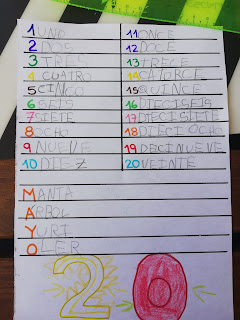 1 UNO
2 DOS
3 TRES
4 CUATRO
5 CINCO
6 SEIS
7 SIETE
8 OCHO
9 NUEVE
10 DIEZ
11 ONCE
12 DOCE
13 TRECE
14 CATORCE
15 QUINCE
16 DIECISEIS
17 DIECISIETE
18 DIECI OCHO
19 DECINUEVE
20 VEINTE
MANTA
ARBOL
YURI
OLER
20